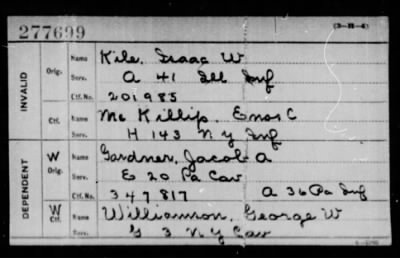 277699
(3-B-4)
INVALID
Orig.
Name Kile, Isaac W
Serv. A 41 Ill Inf
Ctf. No. 201985
Ctf.
Name Mc Killip, Enos C
Serv. H 143 N Y Inf
DEPENDENT
W Orig.
Name Gardner, Jacob A
Serv. E 20 Pa Cav
Ctf. No. 347817 A 36 Pa Inf
W Ctf.
Name Williamson, George W
Serv. G 3 N Y Cav